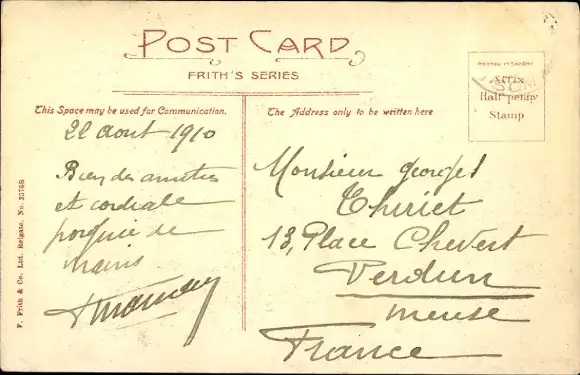 POST CARD
FRITH'S SERIES
PRINTED IN SAXONY
Affix
Half penny
Stamp
This Space may be used for Communication.
The Address only to be written here
22 aout 1910
Bien des amitiés
et cordiale
poignée de
mains
Monsieur Georges
Thiriet
13, Place Chevert
Verdun
Meuse
France
F. Frith & Co. Ltd. Reigate. No. 2576B